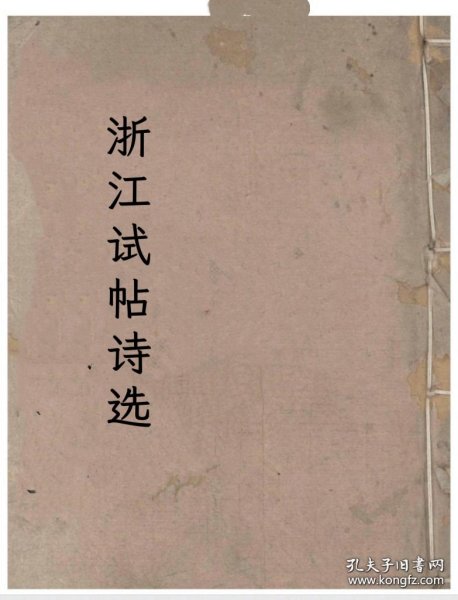 浙江试帖诗选
孔夫子旧书网
www.kongfz.com